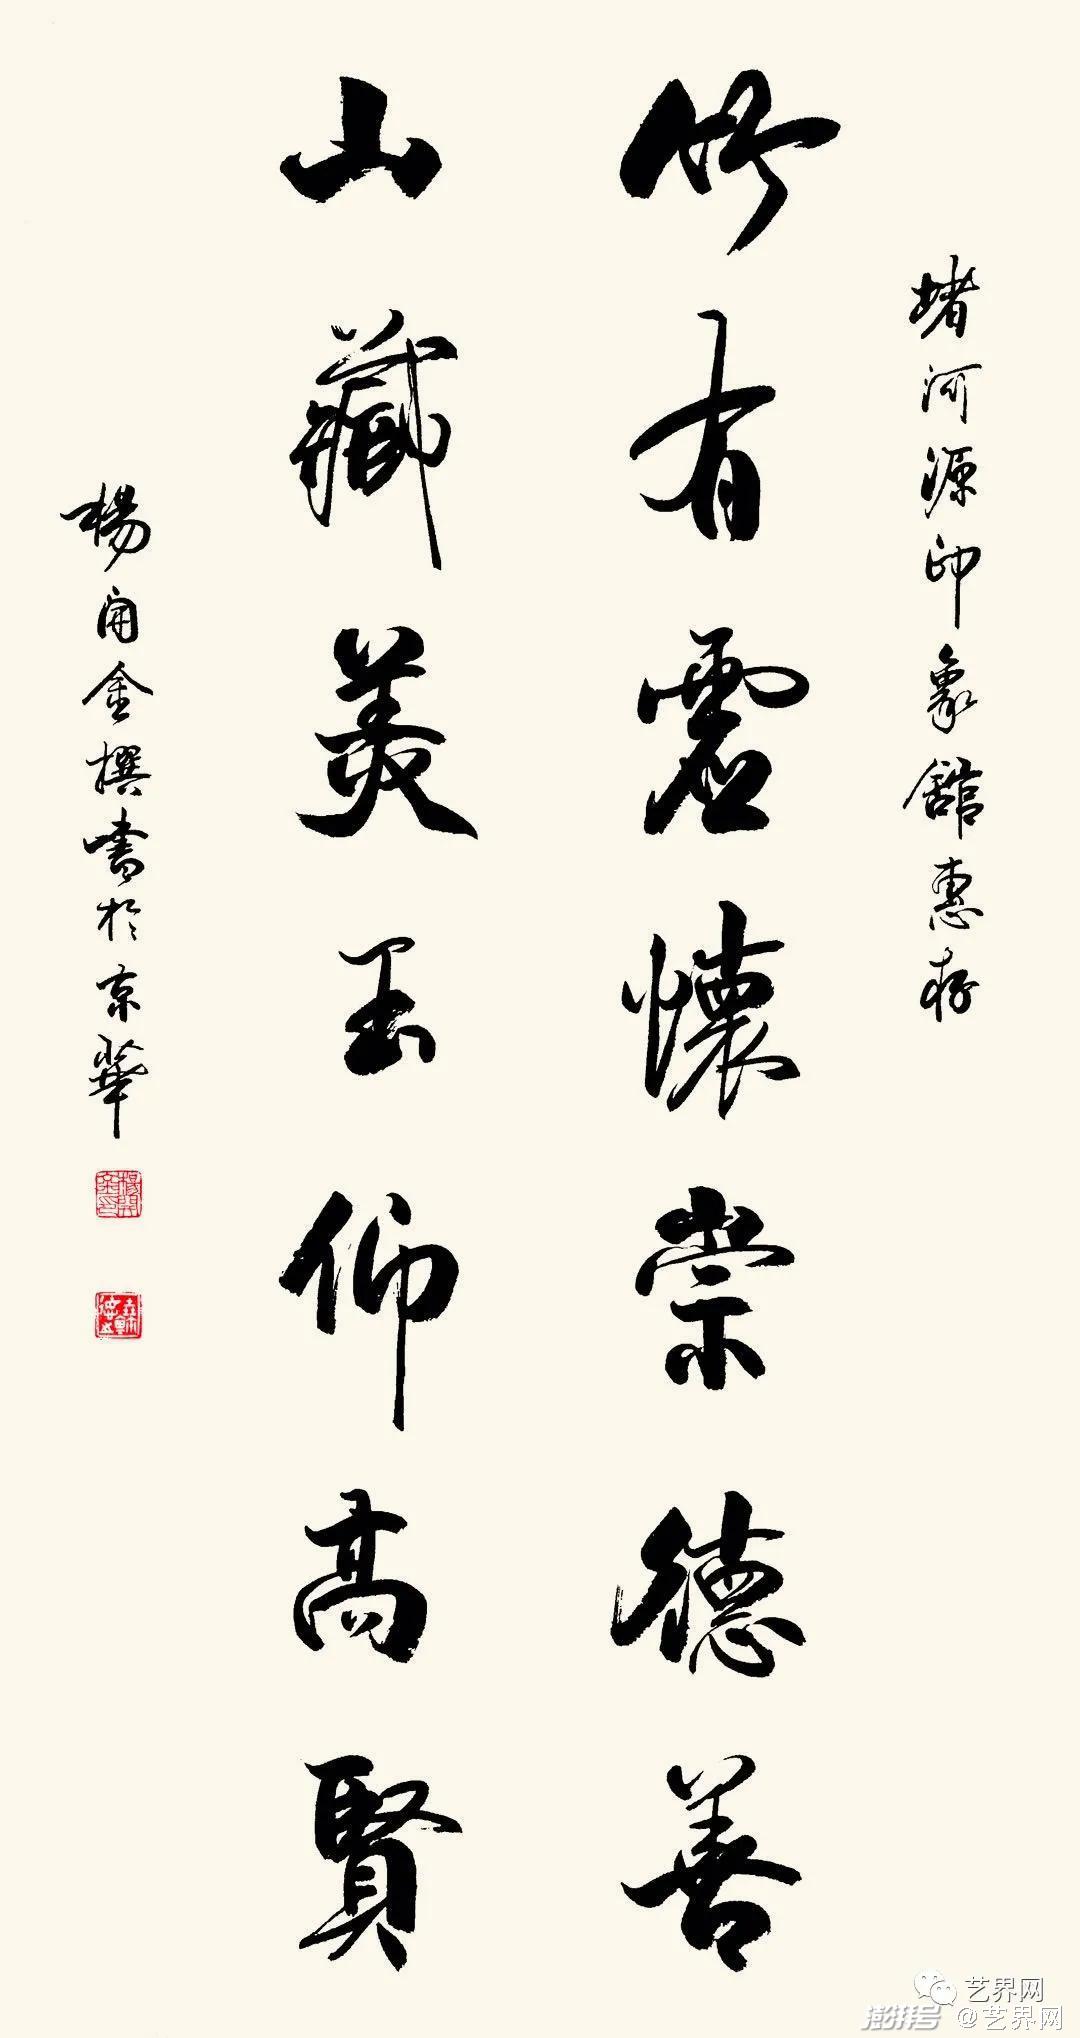 堵河源印象舘惠存
竹有虛懷崇德善
山藏美玉仰高賢
楊開金撰書於京華
楊開金印
艺界网
澎湃号 @艺界网